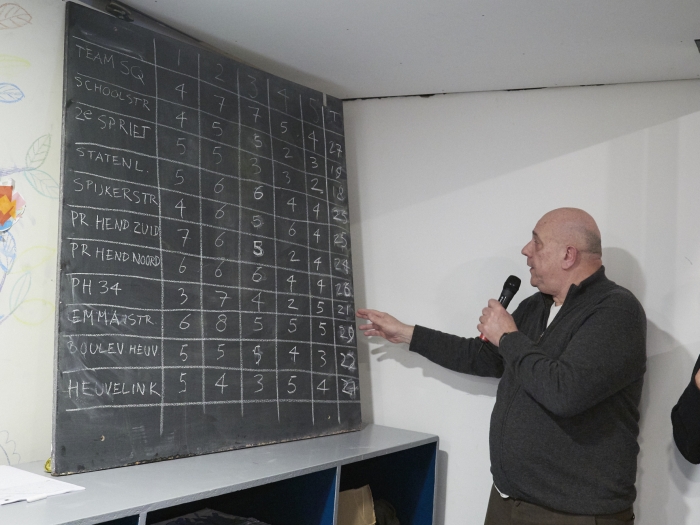 1 2 3 4 5 T
TEAM SQ 4 7 7 5 4 27
SCHOOLSTR 4 5 5 2 3 19
2e SPRIET 5 5 3 3 2 18
STATENL. 5 6 6 4 4 25
SPIJKERSTR 4 6 5 6 4 25
PR HEND ZUID 7 6 5 2 4 24
PR HEND NOORD 6 6 6 4 4 26
PH 34 3 7 4 2 5 21
EMMASTR. 6 8 5 5 5 29
BOULEV HEUV 5 5 5 4 3 22
HEUVELINK 5 4 3 5 4 21